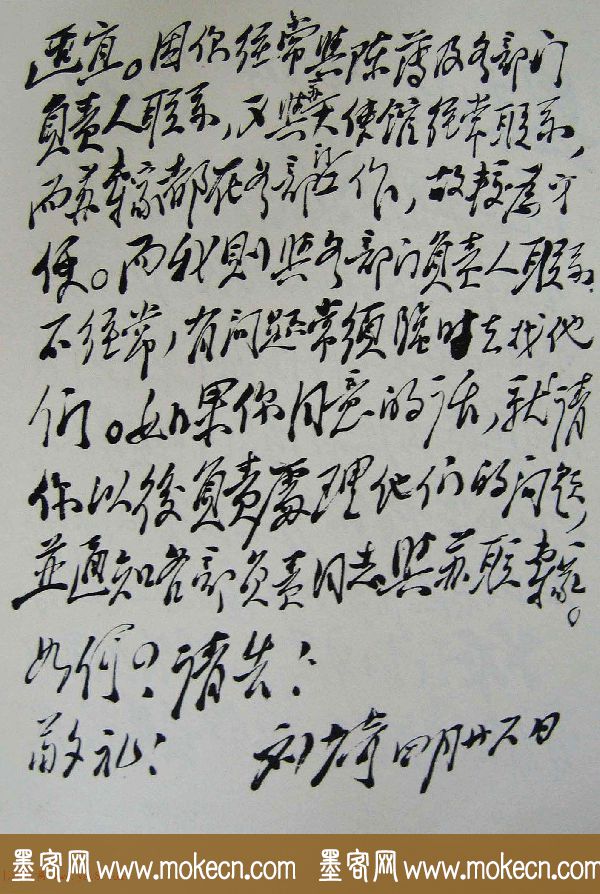 适宜。因你经常与陈薄及各部门
负责人联系,又与苏大使馆经常联系,
而苏专家都在各部门工作,故较为方
便。而我则与各部门负责人联系
不经常,有问题常须临时去找他
们。如果你同意的话,就请
你以後负责處理他们的问题,
並通知各部负责同志与苏联专家。
如何?请告!
敬礼! 刘少奇 四月廿六日
墨客网 www.mokecn.com 墨客网 www.mokecn.com